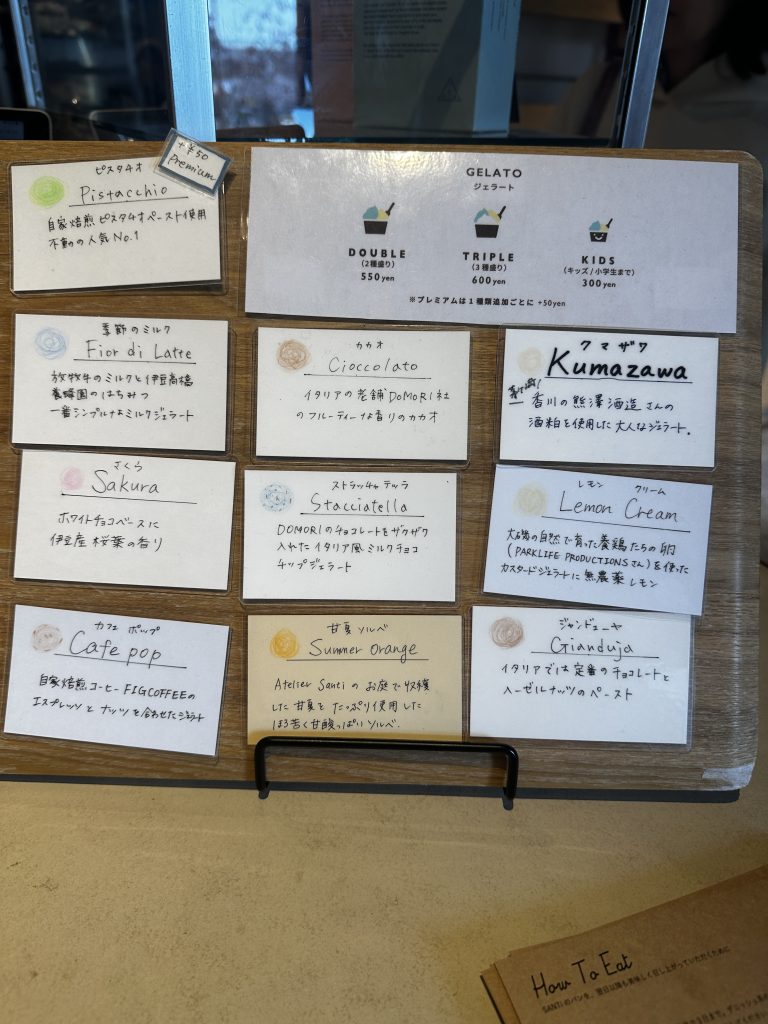 ピスタチオ
+¥50
Premium
Pistacchio
自家焙煎ピスタチオペースト使用
不動の人気No.1
GELATO
ジェラート
DOUBLE
(2種盛り)
550yen
TRIPLE
(3種盛り)
600yen
KIDS
(キッズ/小学生まで)
300yen
※プレミアムは1種類追加ごとに +50yen
季節のミルク
Fior di Latte
放牧牛のミルクと伊豆高橋
養蜂園のはちみつ
一番シンプルなミルクジェラート
カカオ
Cioccolato
イタリアの老舗DOMORI社
のフルーティーな香りのカカオ
クマザワ
Kumazawa
香川の熊澤酒造さんの
酒粕を使用した大人なジェラート。
さくら
Sakura
ホワイトチョコベースに
伊豆産桜葉の香り
ストラッチャテッラ
Stacciatella
DOMORIのチョコレートをザクザク
入れたイタリア風ミルクチョコ
チップジェラート
レモン クリーム
Lemon Cream
大磯の自然で育った養鶏たちの卵
(PARKLIFE PRODUCTIONSさん)を使った
カスタードジェラートに無農薬レモン
カフェ ポップ
Cafe pop
自家焙煎コーヒーFIGCOFFEEの
エスプレッソとナッツを合わせたジェラート
甘夏ソルベ
Summer orange
Atelier Santiのお庭で収穫
した甘夏をたっぷり使用した
ほろ苦く甘酸っぱいソルベ.
ジャンドューヤ
Gianduja
イタリアでは定番のチョコレートと
ヘーゼルナッツのペースト
How To Eat
SANTiのパンを、翌日以降も美味しく召し上がっていただくために